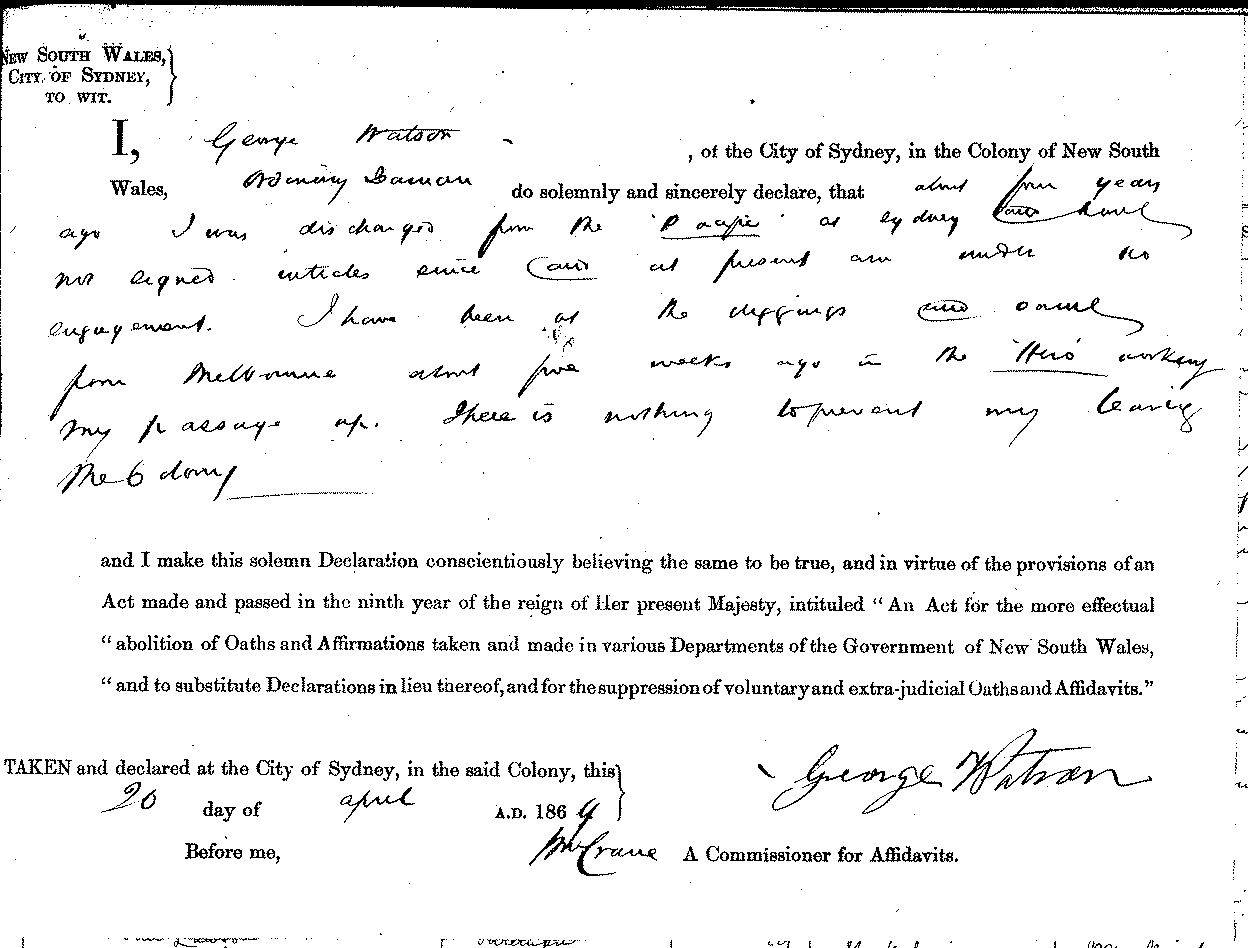 NEW SOUTH WALES,
CITY OF SYDNEY,
TO WIT.
I, George Watson , of the City of Sydney, in the Colony of New South
Wales, Ordinary Seaman do solemnly and sincerely declare, that about four years
ago I was discharged from the 'Pacific' at Sydney and have
not signed articles since and at present am under no
engagement. I have been at the diggings and came
from Melbourne about five weeks ago in the 'Hero' working
my passage up. There is nothing to prevent my leaving
the Colony
and I make this solemn Declaration conscientiously believing the same to be true, and in virtue of the provisions of an
Act made and passed in the ninth year of the reign of Her present Majesty, intituled "An Act for the more effectual
"abolition of Oaths and Affirmations taken and made in various Departments of the Government of New South Wales,
"and to substitute Declarations in lieu thereof, and for the suppression of voluntary and extra-judicial Oaths and Affidavits."
TAKEN and declared at the City of Sydney, in the said Colony, this
George Watson
20 day of april A.D. 1869
Before me, Crane A Commissioner for Affidavits.